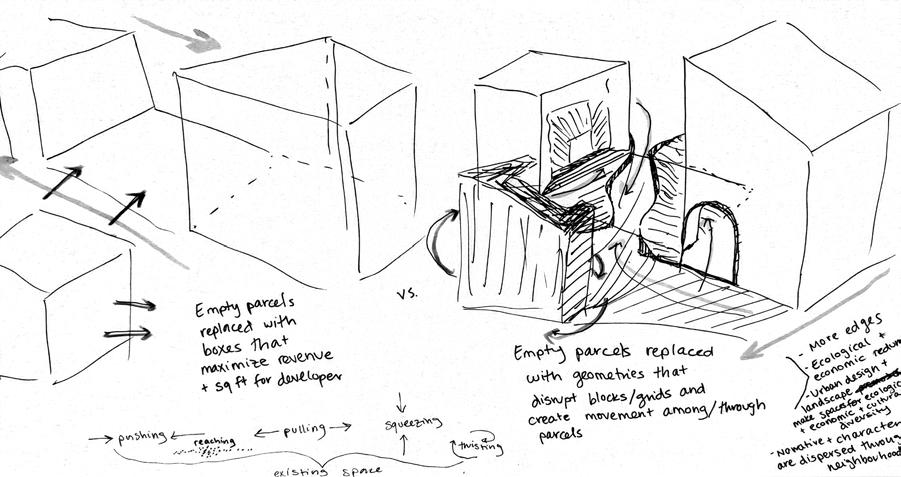 Empty parcels
replaced with
boxes that
maximize revenue
+ sq ft for developer
vs.
Empty parcels replaced
with geometries that
disrupt blocks/grids and
create movement among/through
parcels
- More edges
- Ecological +
economic
- Urban design +
landscape
make spaces for ecological
+ economic + cultural
diversity
- Narrative + character
are dispersed through
neighbourhood
pushing
reaching
pulling
squeezing
twisting
existing space